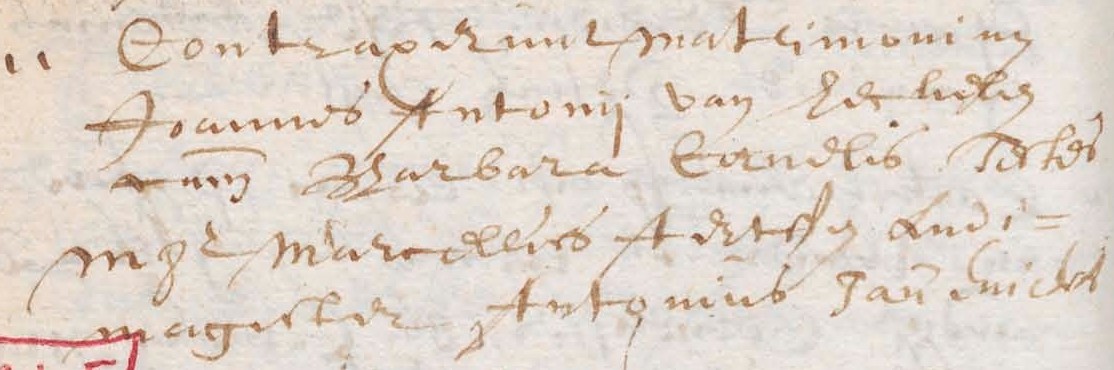 11 Contraxerunt matrimonium
Joannes Antonij van
cum Barbara Cornelis Testes
mgr Marcellus Aertssen Ludi=
magister Antonius